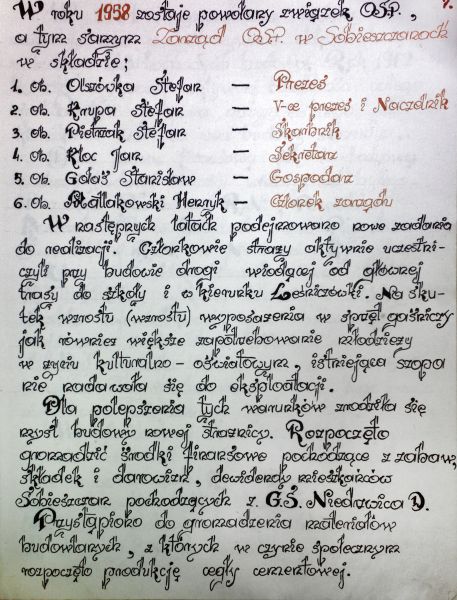 7.
W roku 1958 zostaje powołany związek OSP.,
a tym samym Zarząd OSP. w Sobieszczanach
w składzie;
1. Ob. Olszówka Stefan — Prezes
2. Ob. Krupa Stefan — V-ce prezes i Naczelnik
3. Ob. Pietrzak Stefan — Skarbnik
4. Ob. Kłoc Jan — Sekretarz
5. Ob. Gołoś Stanisław — Gospodarz
6. Ob. Małłakowski Henryk — Członek zarządu
W następnych latach podejmowano nowe zadania
do realizacji. Członkowie straży aktywnie uczestni-
czyli przy budowie drogi wiodącej od głównej
trasy do szkoły i w kierunku Leśniczówki. Na sku-
tek wzrostu (wzrostu) wyposażenia w sprzęt gaśniczy
jak również większe zapotrzebowanie młodzieży
w życiu kulturalno - oświatowym, istniejąca szopa
nie nadawała się do eksploatacji.
Dla polepszenia tych warunków zrodziła się
myśl budowy nowej strażnicy. Rozpoczęto
gromadzić środki finansowe pochodzące z zabaw,
składek i darowizn, dewidendy mieszkańców
Sobieszczan pochodzących z G.Ś. Niedrzwica D.
Przystąpiono do gromadzenia materiałów
budowlanych, z których w czynie społecznym
rozpoczęto produkcję cegły cementowej.